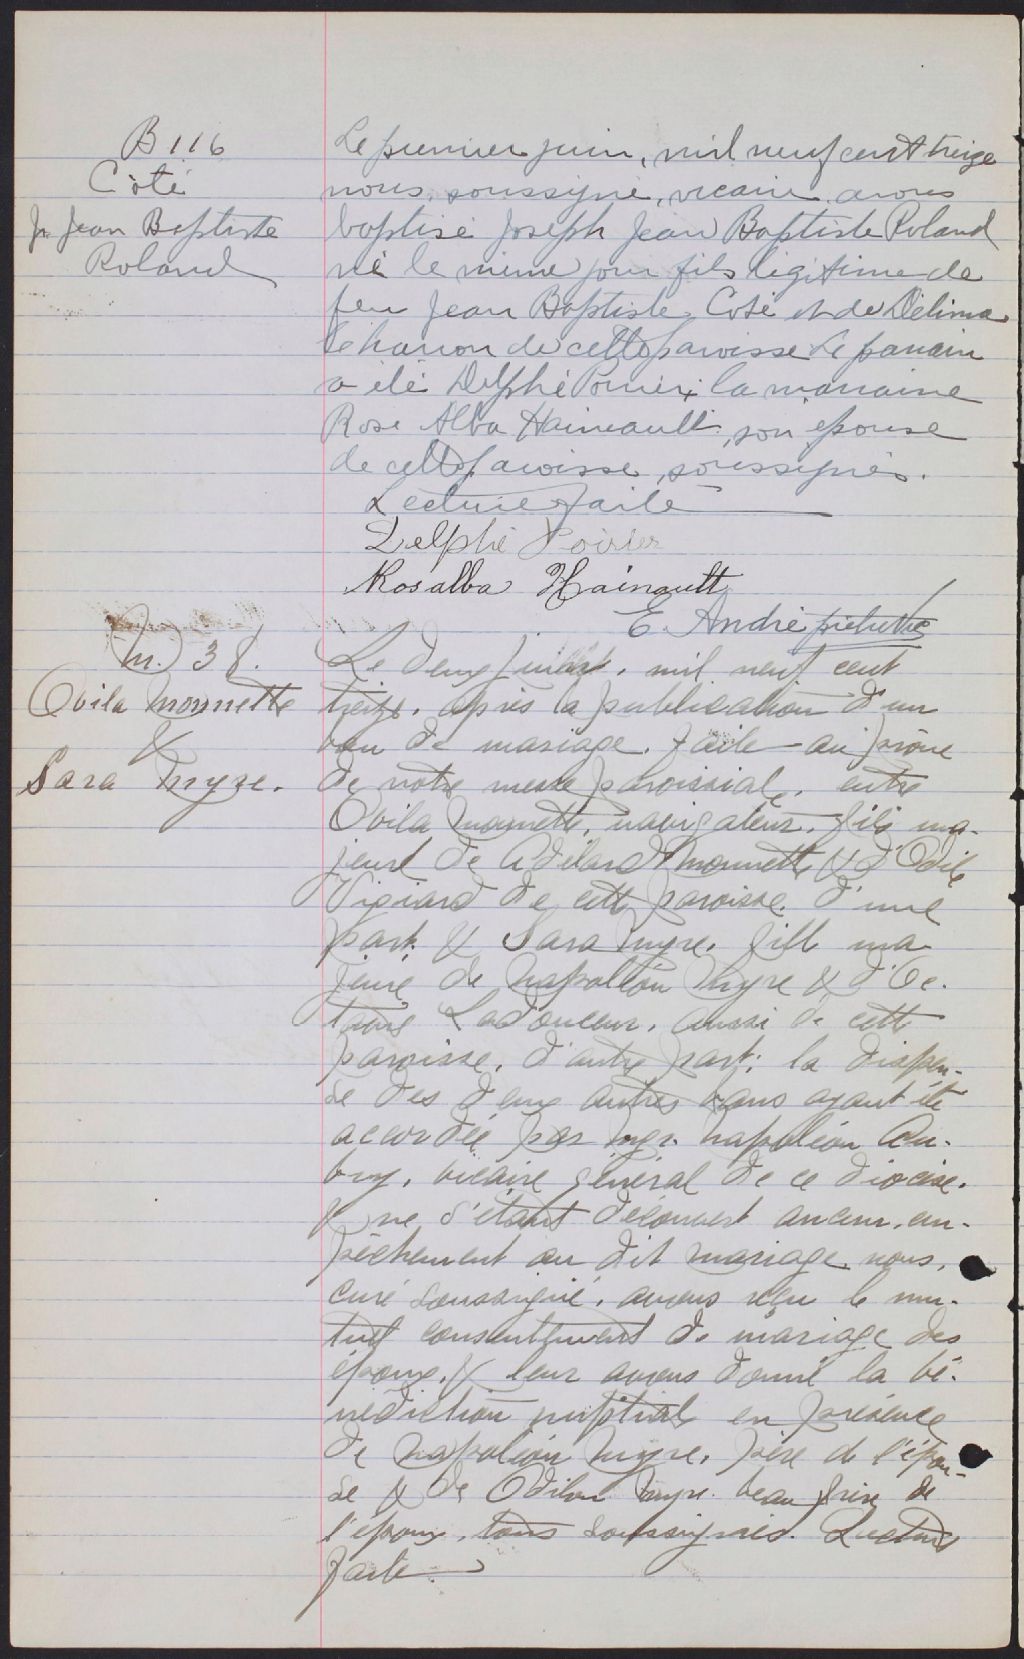 B 116
Côté
Js Jean Baptiste
Roland
Le premier juin, mil neuf cent treize
nous, soussigné, vicaire avons
baptisé Joseph Jean Baptiste Roland
né le même jour fils légitime de
feu Jean Baptiste Coté et de Délima
de cette paroisse Le parrain
a été Delphé Poirier la marraine
Rose Alba Haineault son épouse
de cette paroisse, soussignés.
Lecture faite
Delphé Poirier
Rosalba Hainault
E. André prêtre
M. 38.
Ovila Monnette
&
Sara Myre.
Le deux juin, mil neuf cent
treize, après la publication d'un
ban de mariage, faite au prône
de notre messe paroissiale, entre
Ovila Monnette, navigateur, fils ma-
jeur de Adélard Monnette & d'Odile
Vigiard de cette paroisse, d'une
part & Sara Myre, fille ma
jeure de Napoléon Myre & d'Oc-
tavie Ladouceur, aussi de cette
paroisse, d'autre part; la dispen-
se des deux autres bans ayant été
accordée par Mgr. Napoléon Au-
bry, vicaire général de ce diocèse,
& ne s'étant découvert aucun em-
pêchement au dit mariage, nous,
curé soussigné, avons reçu le mu-
tuel consentement de mariage des
époux, & leur avons donné la bé-
nédiction nuptiale en présence
de Napoléon Myre, père de l'épou-
se & de Odilon Myre beau frère de
l'époux, tous soussignés. Lecture
faite.